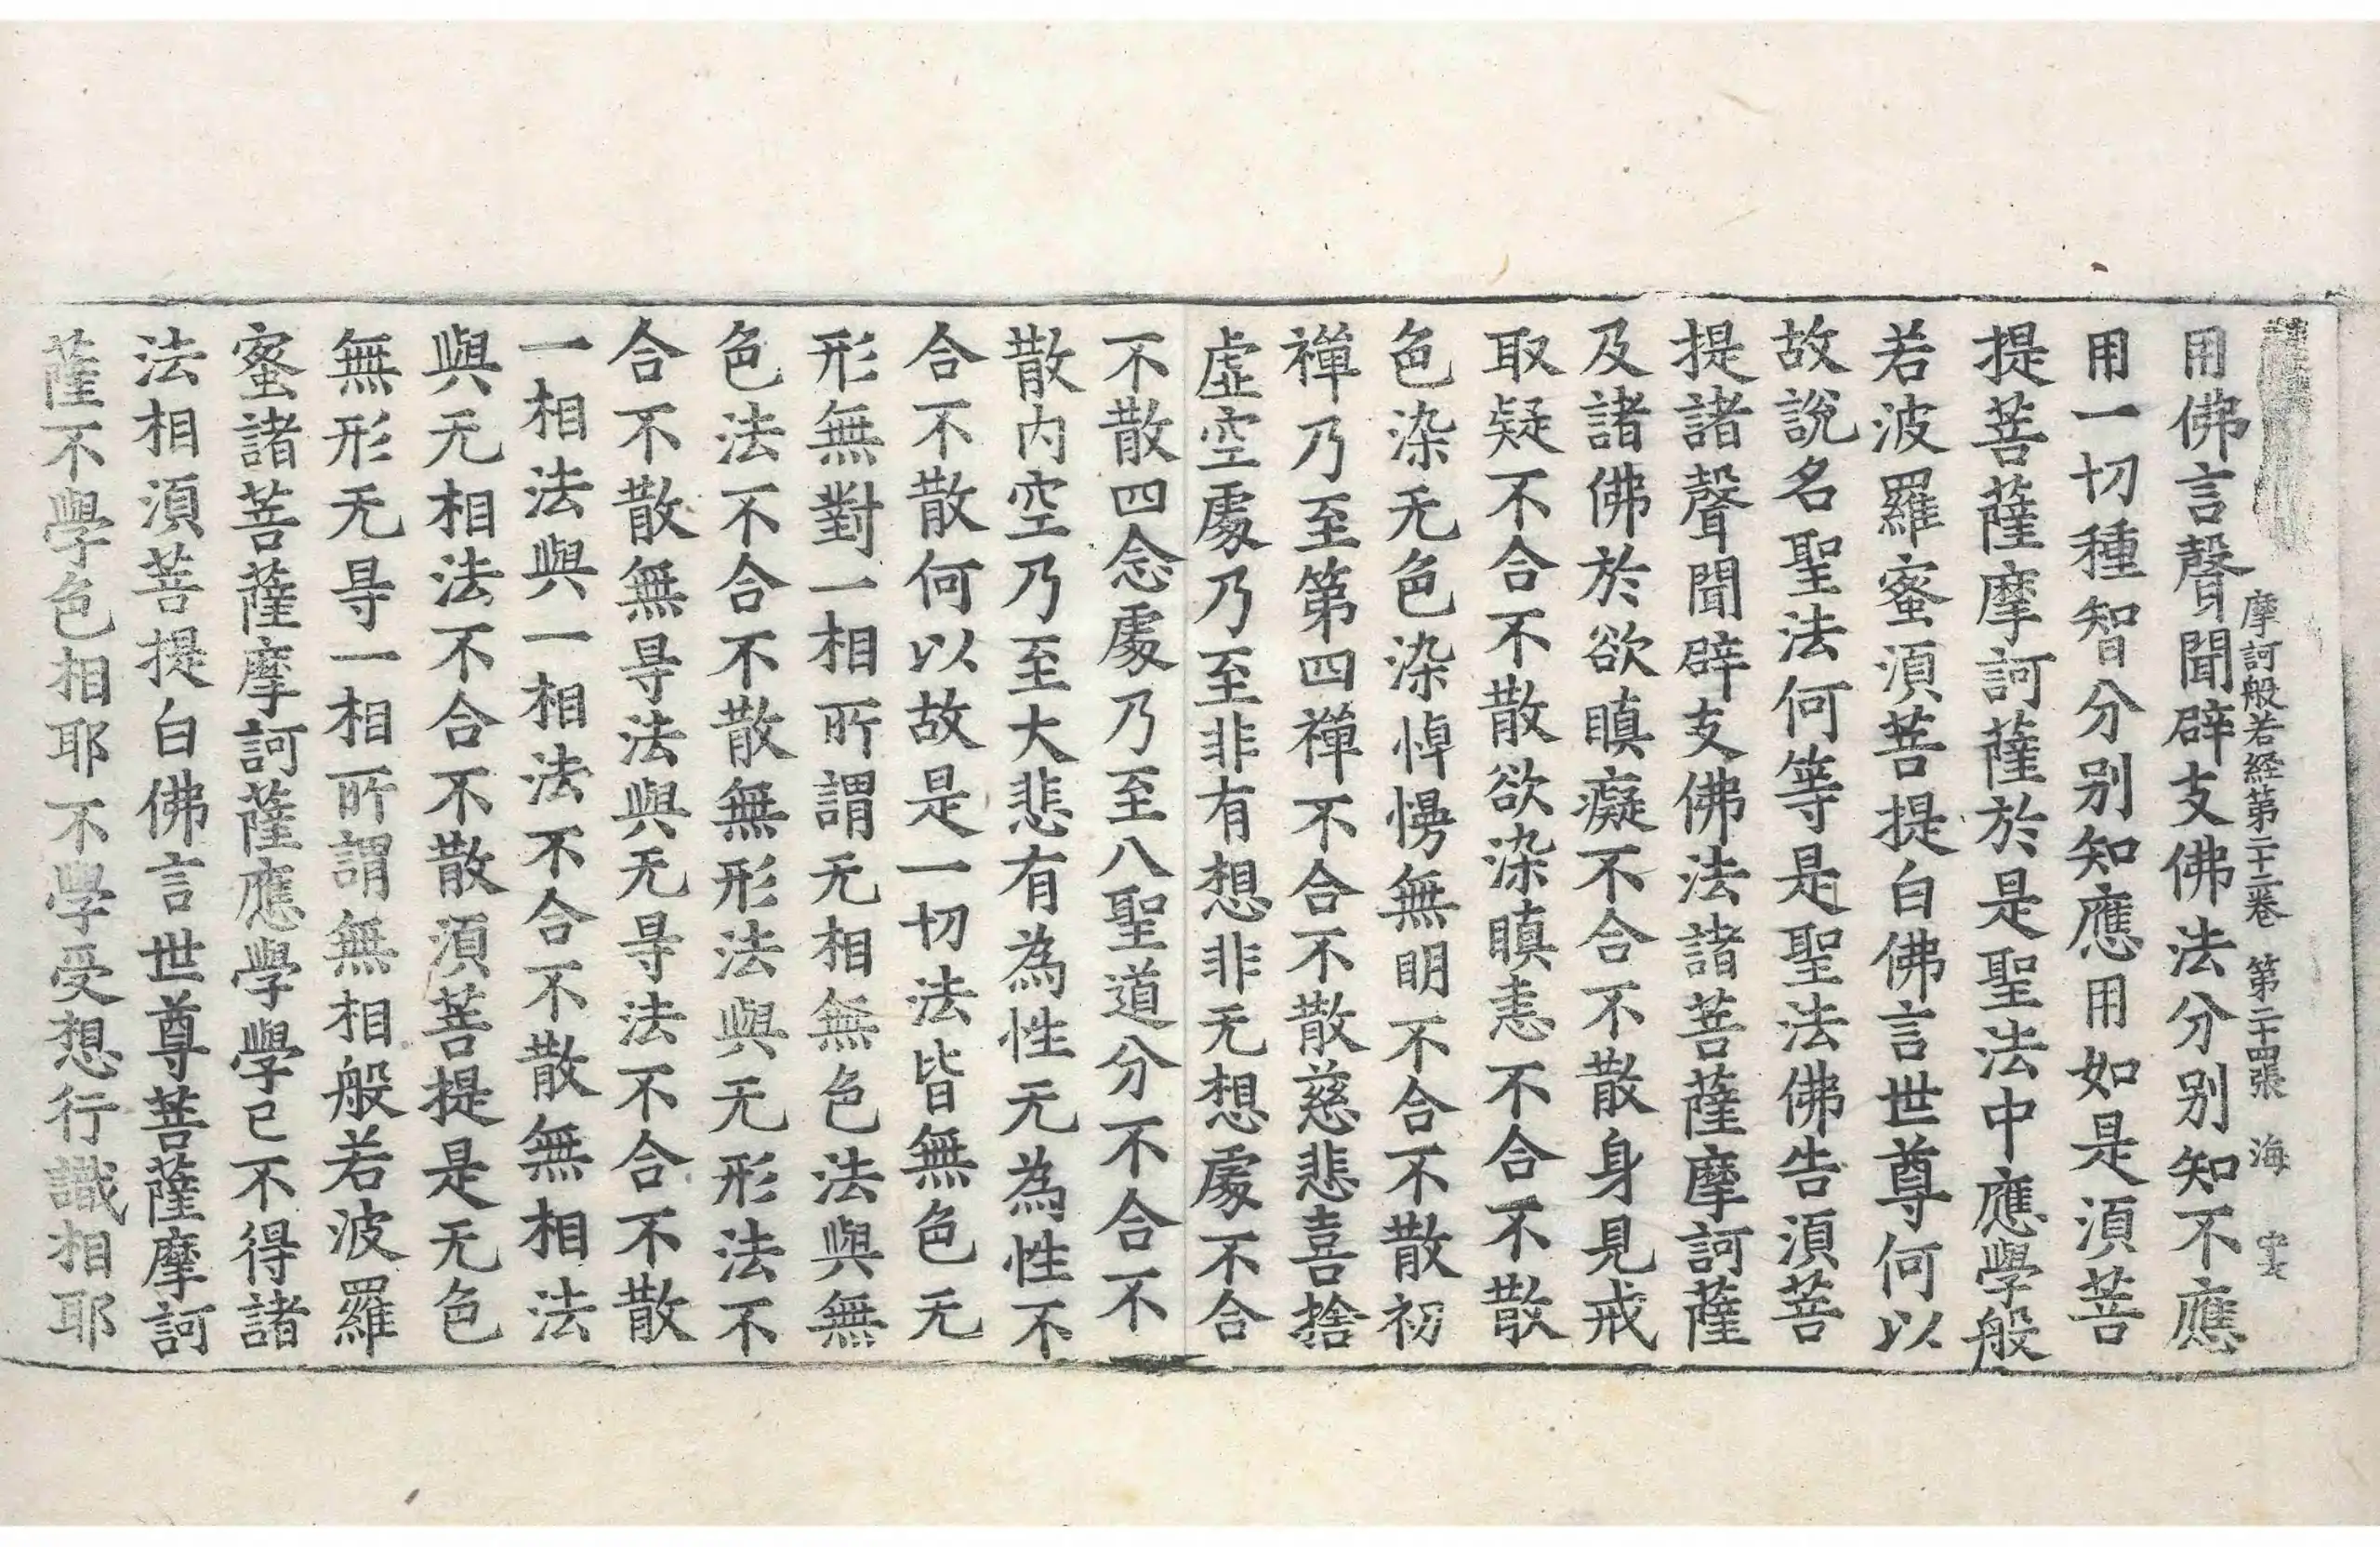 摩訶般若経第二十二卷 第二十四張 海
用佛言聲聞辟支佛法分別知不應
用一切種智分別知應用如是須菩
提菩薩摩訶薩於是聖法中應學般
若波羅蜜須菩提白佛言世尊何以
故說名聖法何等是聖法佛告須菩
提諸聲聞辟支佛法諸菩薩摩訶薩
及諸佛於欲瞋癡不合不散身見戒
取疑不合不散欲染瞋恚不合不散
色染无色染悼慢無明不合不散初
禪乃至第四禪不合不散慈悲喜捨
虛空處乃至非有想非无想處不合
不散四念處乃至八聖道分不合不
散内空乃至大悲有為性无為性不
合不散何以故是一切法皆無色无
形無對一相所謂无相無色法與無
色法不合不散無形法與无形法不
合不散無㝵法與无㝵法不合不散
一相法與一相法不合不散無相法
與无相法不合不散須菩提是无色
無形无㝵一相所謂無相般若波羅
蜜諸菩薩摩訶薩應學學已不得諸
法相須菩提白佛言世尊菩薩摩訶
薩不學色相耶不學受想行識相耶